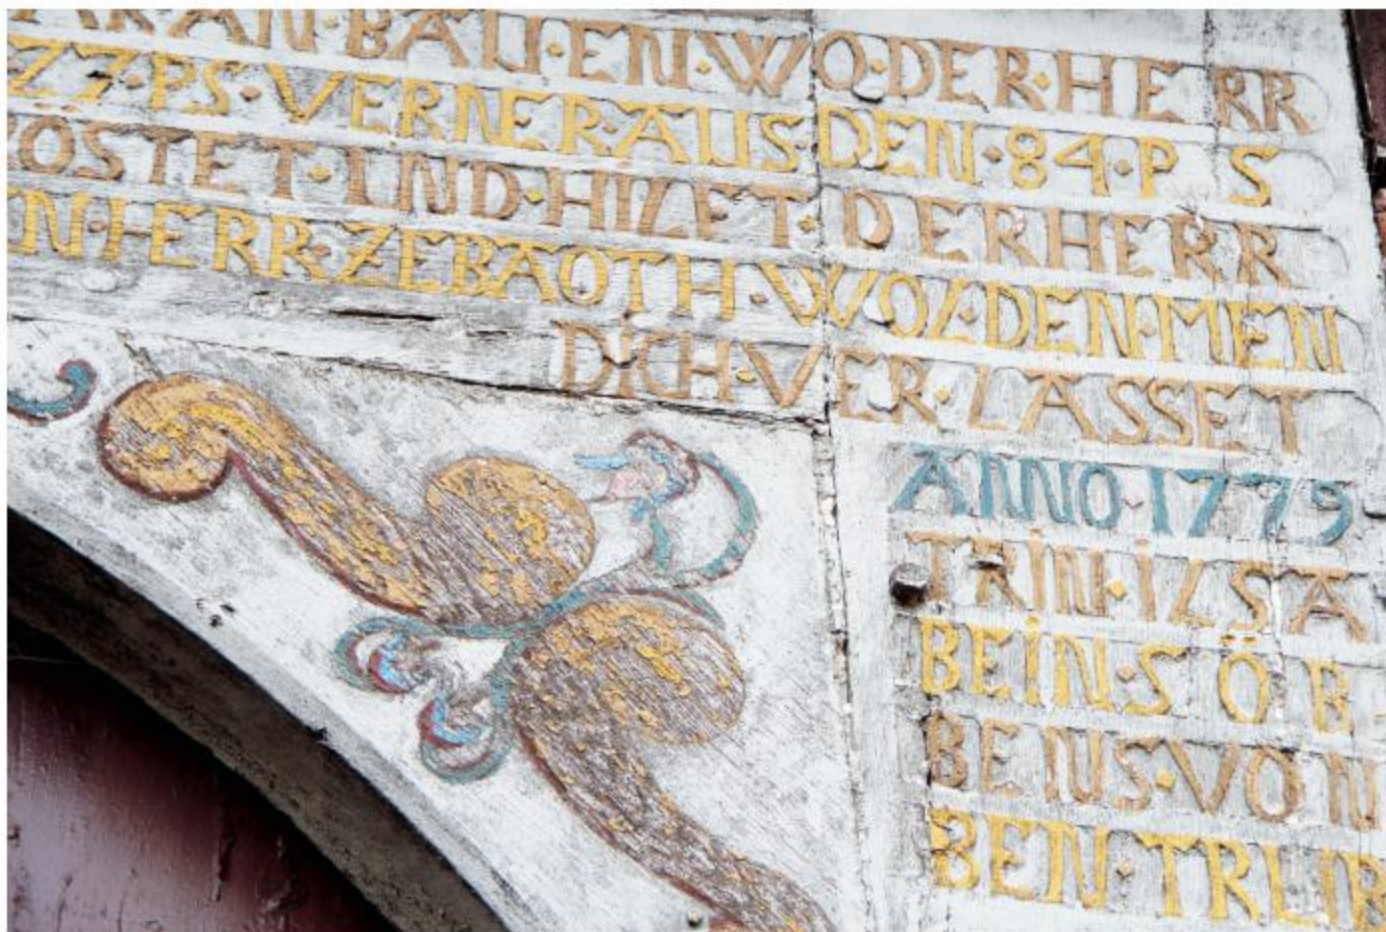 ARAN·BAUEN·WO·DER·HERR
127·PS·VERNER AUS·DEN·84·P S
KOSTET·UND·HILFT·DER HERR
N·HERR·ZEBAOTH·WOL·DEN·MEN
DICH·VER·LASSET
ANNO·1779
TRIN·ILSA
BEIN·SÖB
BENS·VON
BEN·TRUB